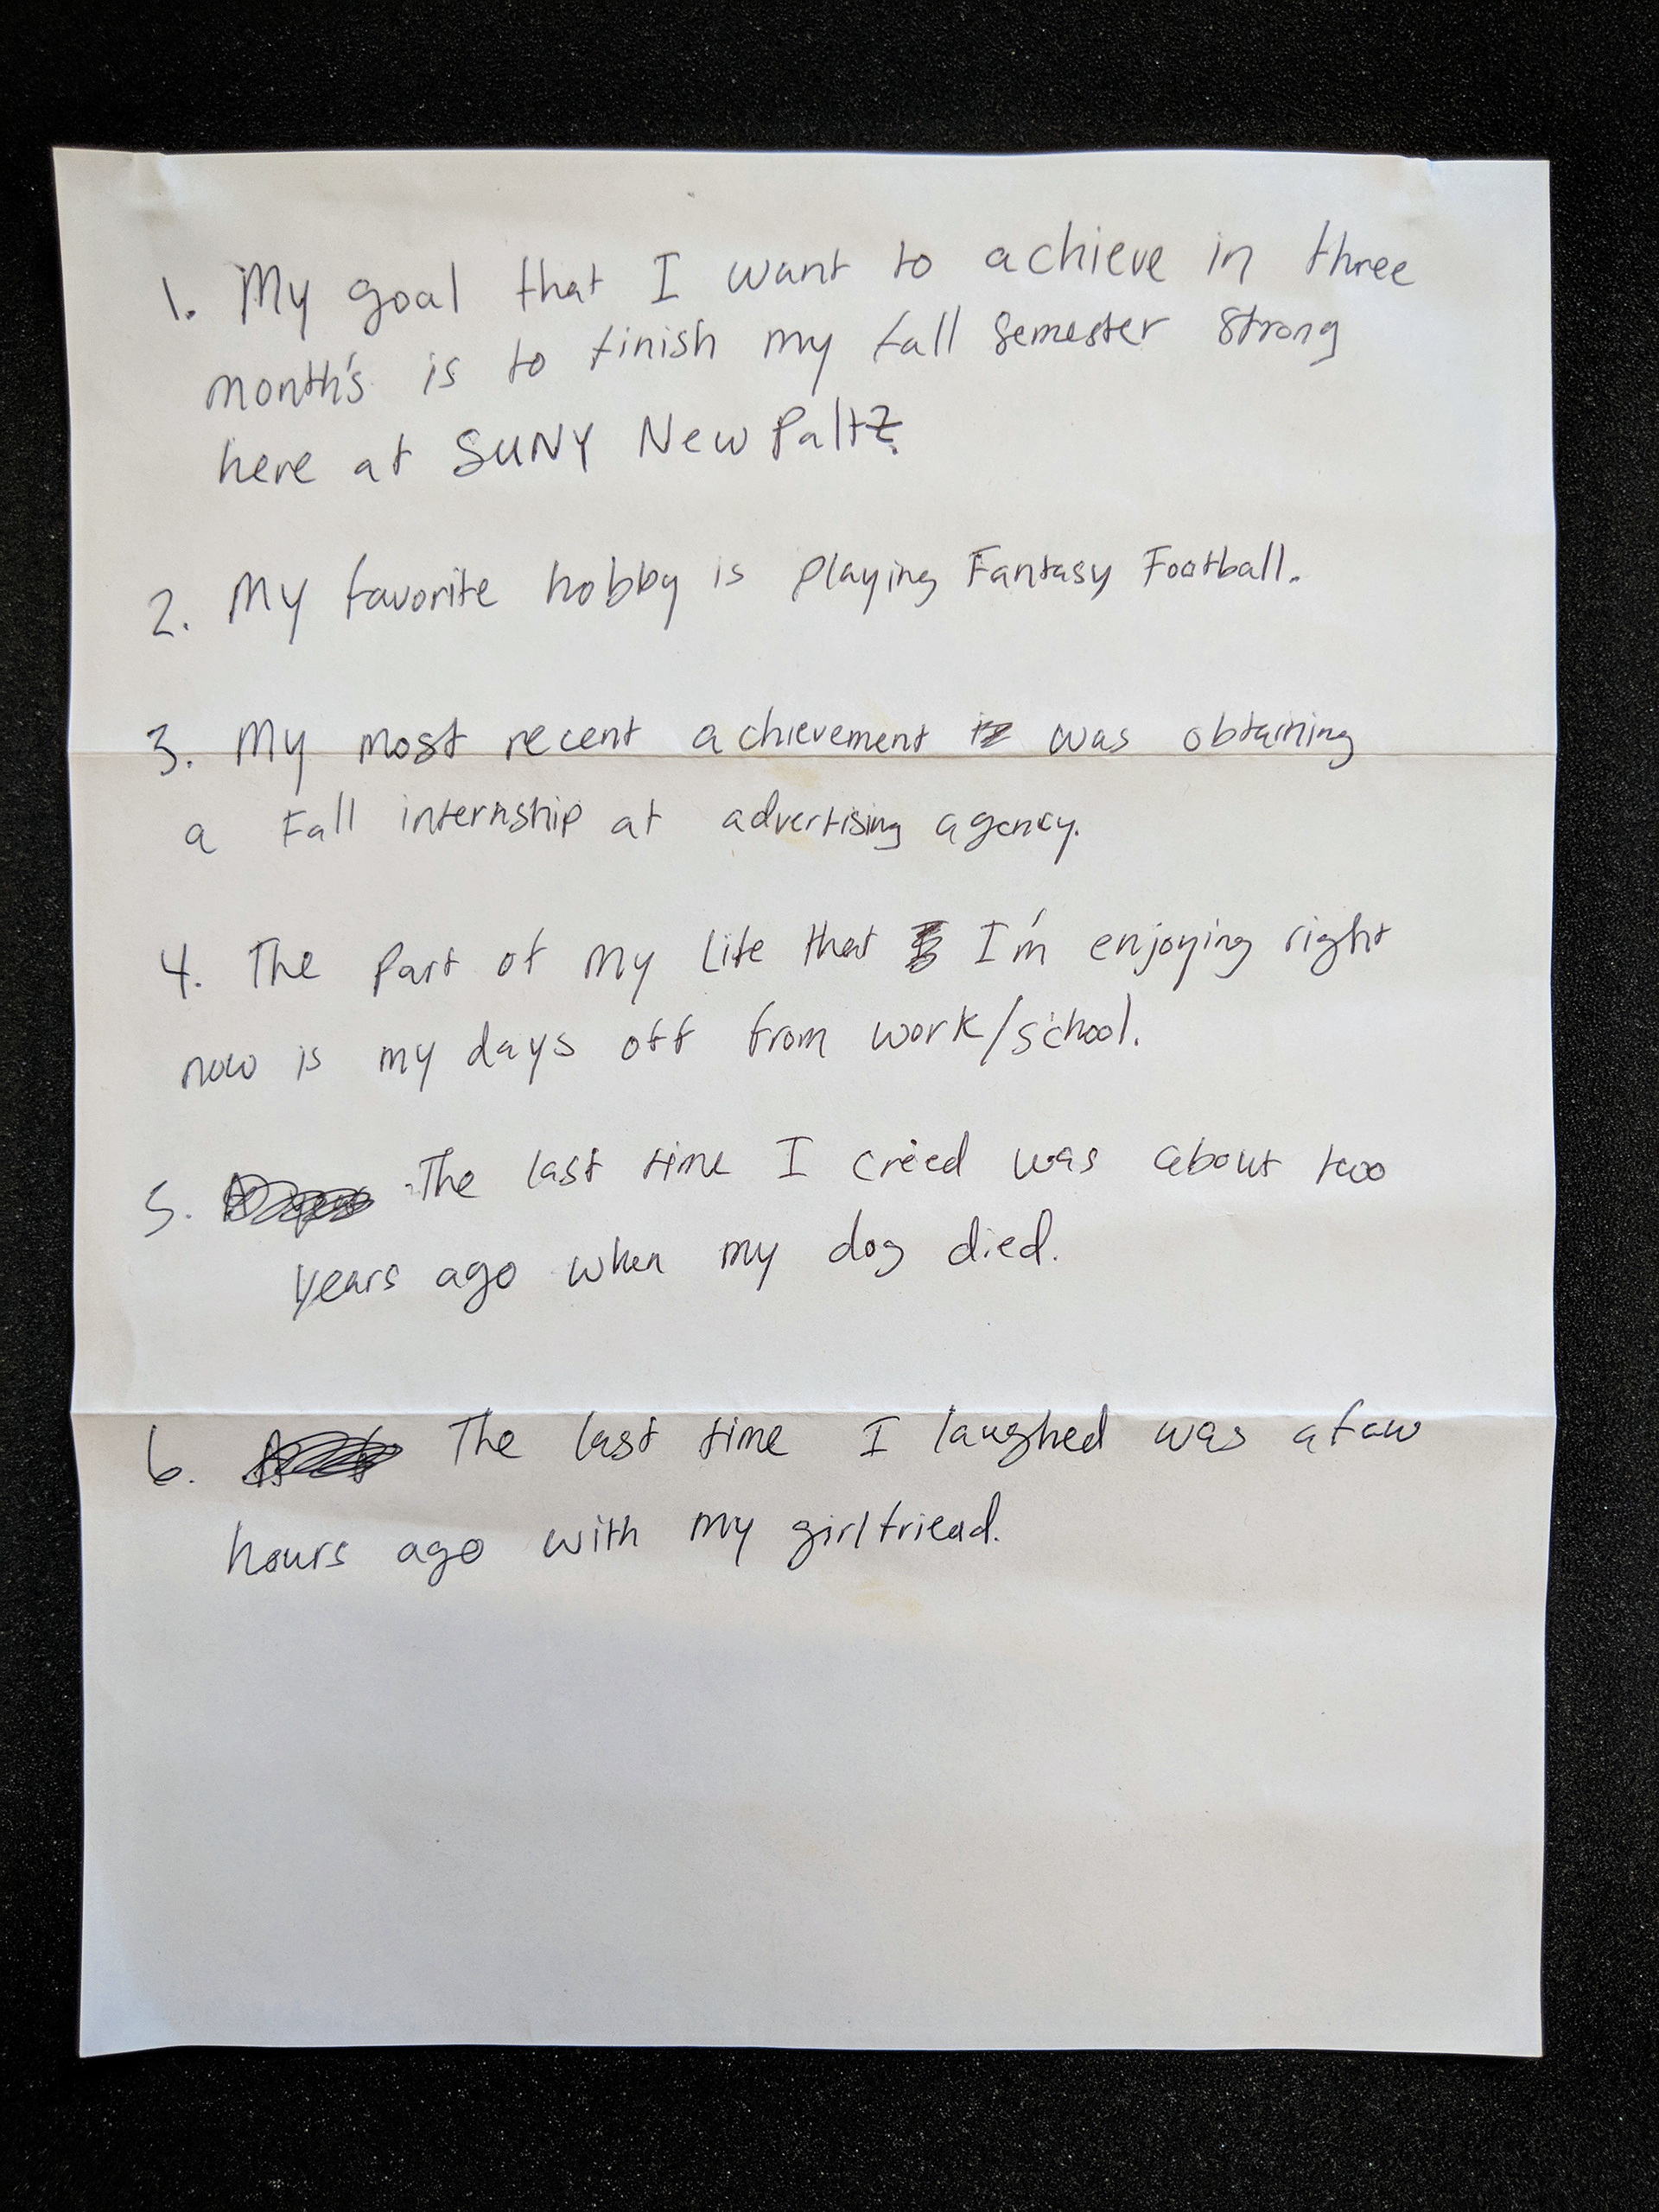 1. My goal that I want to achieve in three
month's is to finish my fall semester strong
here at SUNY New Paltz.
2. My favorite hobby is playing Fantasy Football.
3. My most recent achievement was obtaining
a Fall internship at advertising agency.
4. The part of my life that I'm enjoying right
now is my days off from work/school.
5. The last time I cried was about two
years ago when my dog died.
6. The last time I laughed was a few
hours ago with my girlfriend.